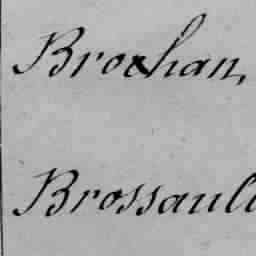 Brochan,
Brossault